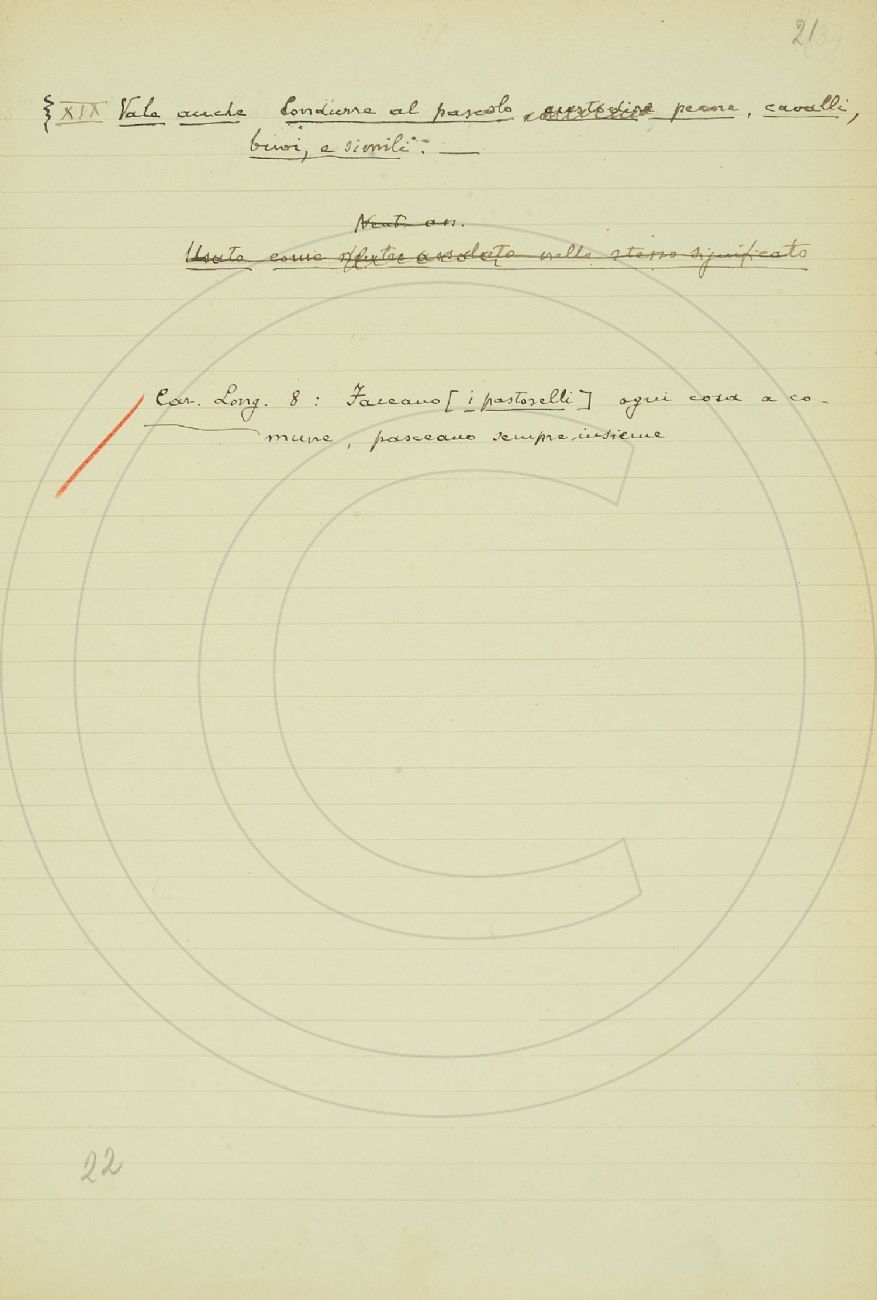 21
§ XIX Vale anche Condurre al pascolo custodire pecore, cavalli,
buoi, e simili: —
Neutr. ass.
Usato come Neutro assoluto nello stesso significato
Car. Long. 8 : Faceano [i pastorelli] ogni cosa a co-
mune, pasceano sempre insieme
22